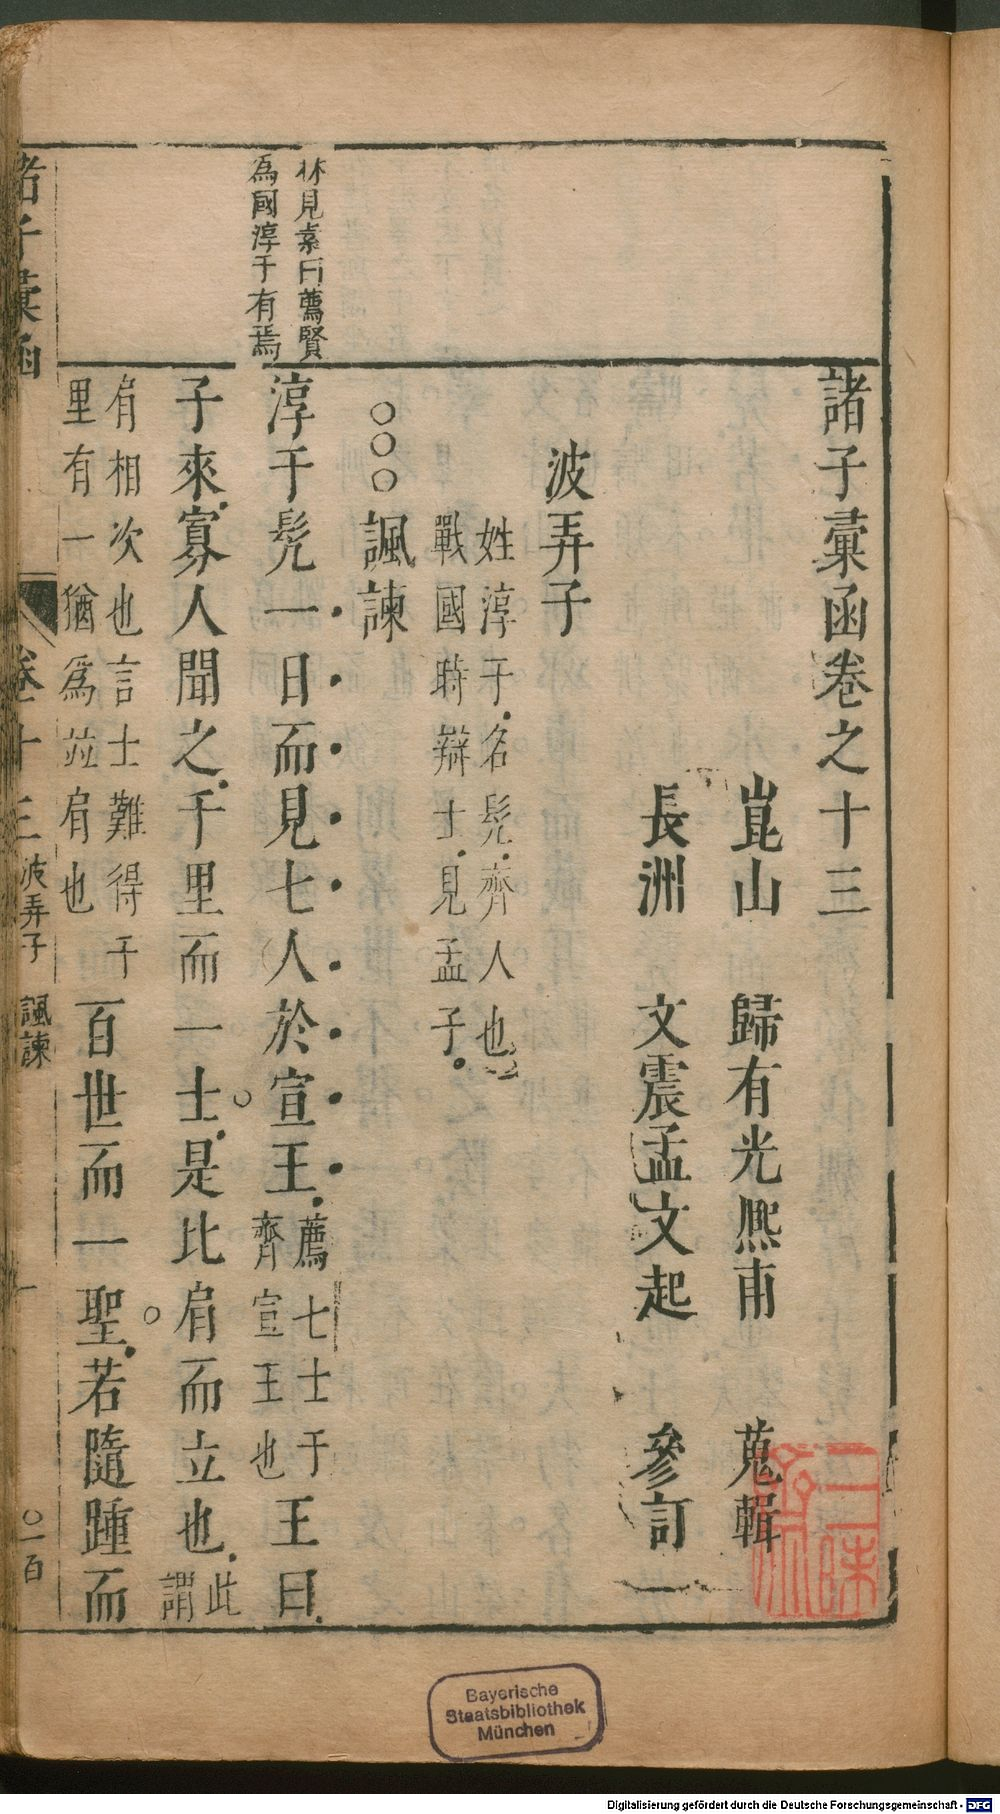 諸子彙函卷之十三
崑山　歸有光熈甫　蒐輯
長洲　文震孟文起　參訂
波弄子
姓淳于名髡齊人也
戰國時辯士見孟子
○○○諷諫
林見素曰薦賢
為國淳于有焉
淳于髡一日而見七人於宣王薦七士于
齊宣王也王曰
子來寡人聞之千里而一士是比肩而立也此
謂
肩相次也言士難得千
里有一猶爲並肩也百世而一聖若隨踵而
諸子彙函　卷十三　波弄子　諷諫　一　○一百
三味
Bayerische
Staatsbibliothek
München
Digitalisierung gefördert durch die Deutsche Forschungsgemeinschaft - DFG